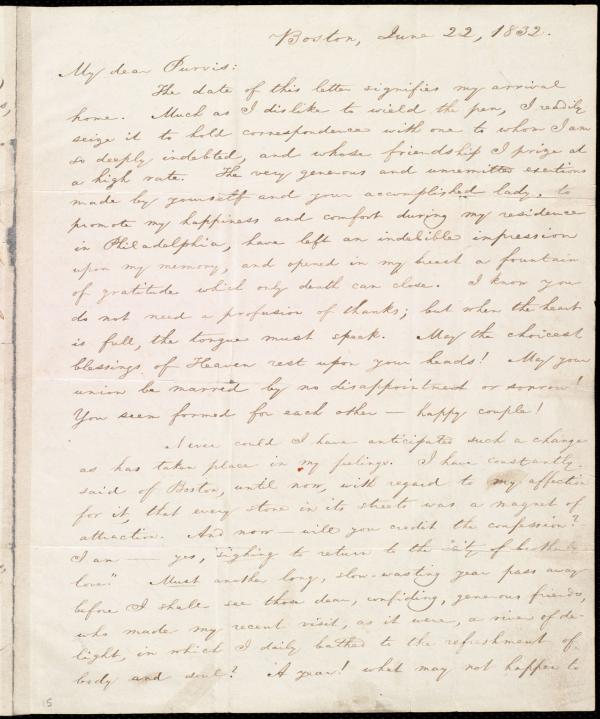 Boston, June 22, 1832.
My dear Purvis:
The date of this letter signifies my arrival
home. Much as I dislike to wield the pen, I readily
seize it to hold correspondence with one to whom I am
so deeply indebted, and whose friendship I prize at
a high rate. The very generous and unremitted exertions
made by yourself and your accomplished lady, to
promote my happiness and comfort during my residence
in Philadelphia, have left an indelible impression
upon my memory, and opened in my breast a fountain
of gratitude which only death can close. I know you
do not need a profusion of thanks; but when the heart
is full, the tongue must speak. May the choicest
blessings of Heaven rest upon your heads! May your
union be marred by no disappointment or sorrow!
You seem formed for each other — happy couple!
Never could I have anticipated such a change
as has taken place in my feelings. I have constantly
said of Boston, until now, with regard to my affection
for it, that every stone in its streets was a magnet of
attraction. And now — will you credit the confession?
I am — yes, sighing to return to the "city of brotherly
love." Must another long, slow-wasting year pass away
before I shall see those dear, confiding, generous friends,
who made my recent visit, as it were, a river of de-
light, in which I daily bathed to the refreshment of
body and soul? A year! what may not happen to
15